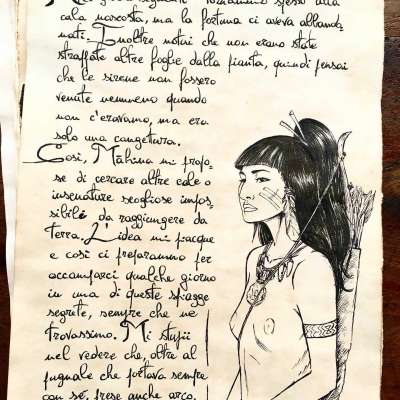 Nei giorni seguenti tornammo spesso alla
cala nascosta, ma la fortuna ci aveva abbando-
nati. Inoltre notai che non erano state
strappate altre foglie dalla pianta, quindi pensai
che le sirene non fossero
venute nemmeno quando
non c'eravamo, ma era
solo una congettura.
Così, Māhina mi propo-
se di cercare altre cale o
insenature scogliose impos-
sibili da raggiungere da
terra. L'idea mi piacque
e così ci preparammo per
accamparci qualche giorno
in una di queste spiagge
segrete, sempre che ne
trovassimo. Mi stupii
nel vedere che, oltre al
pugnale che portava sempre
con sé, prese anche arco,